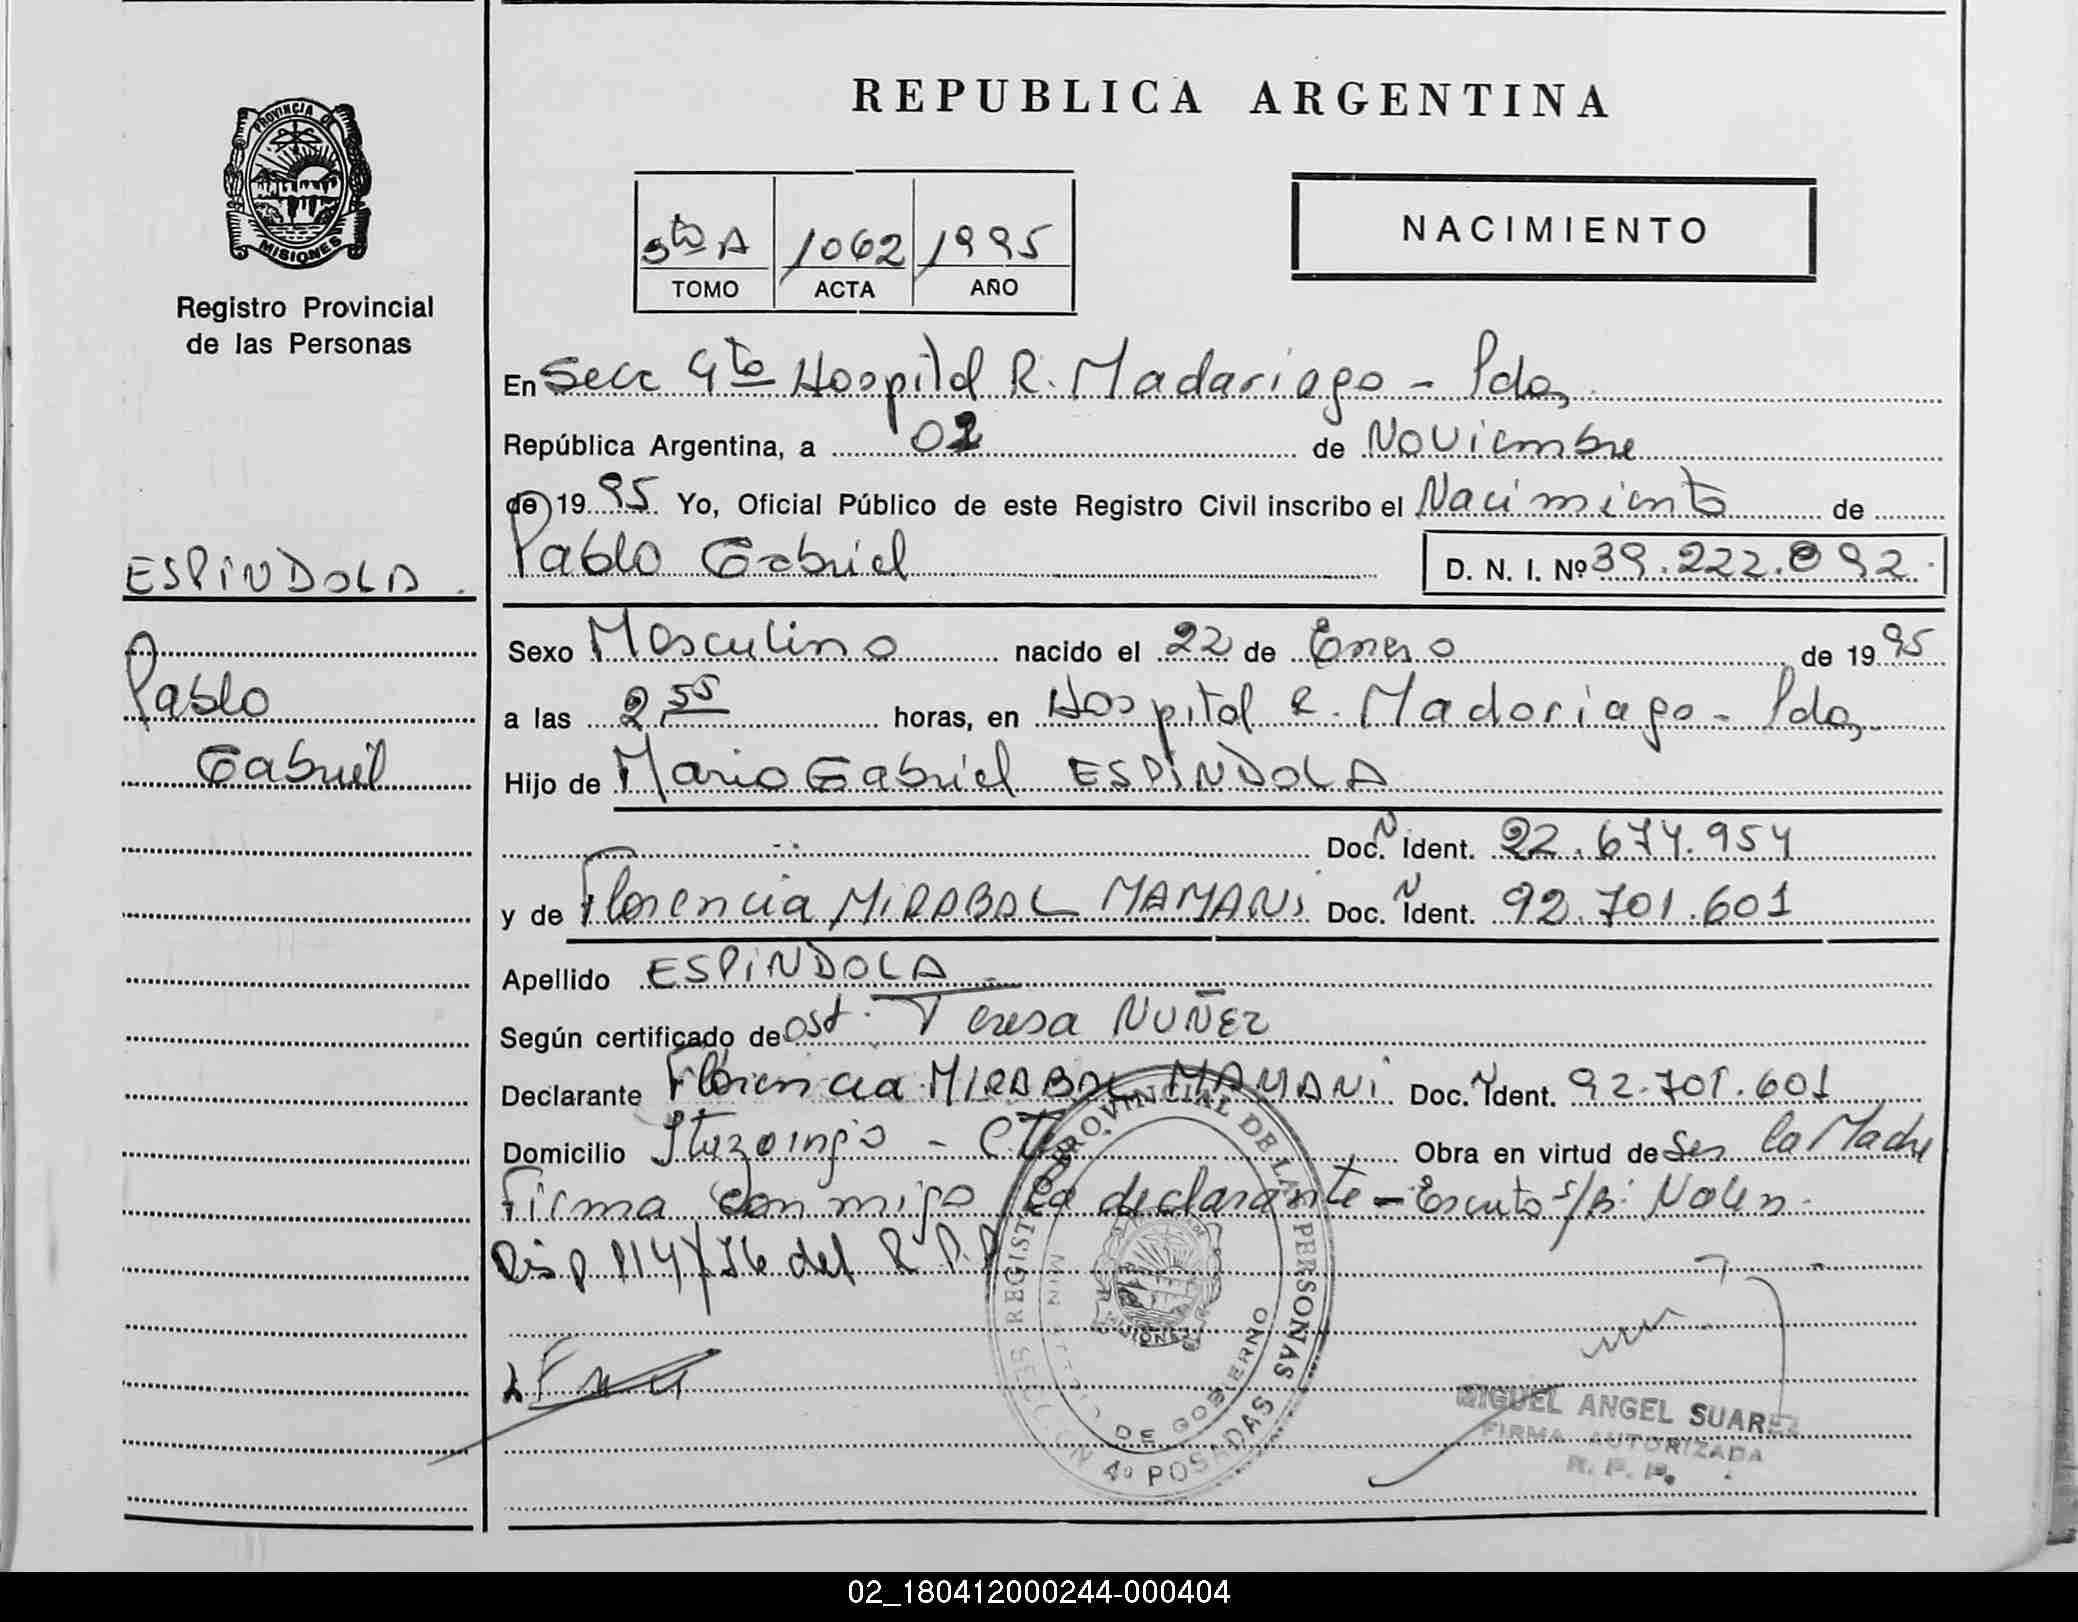 REPUBLICA ARGENTINA
PROVINCIA DE
MISIONES
Registro Provincial
de las Personas
5to A 1062 1995
TOMO ACTA AÑO
NACIMIENTO
En Secc 4ta Hospital R. Madariaga - Pdas
República Argentina, a 02 de Noviembre
de 1995 Yo, Oficial Público de este Registro Civil inscribo el Nacimiento de
Pablo Gabriel D. N. I. Nº 39.222.892.
ESPINDOLA.
Pablo
Gabriel
Sexo Masculino nacido el 22 de Enero de 1995
a las 2,55 horas, en Hospital R. Madariaga - Pdas
Hijo de Mario Gabriel ESPINDOLA
Doc. N Ident. 22.674.954
y de Florencia MIRABAL MAMANI Doc. N Ident. 92.701.601
Apellido ESPINDOLA -
Según certificado de Ost. Teresa NUÑEZ
Declarante Florencia MIRABAL MAMANI Doc. N Ident. 92.701.601
Domicilio Ituzaingo - Obra en virtud de Ser la Madre
Firma conmigo la declarante - s/
Disp 114/76 del R.P.P
REGISTRO PROVINCIAL DE LAS PERSONAS
MINISTERIO DE GOBIERNO
MISIONES
SECCION 4º POSADAS
MIGUEL ANGEL SUAREZ
FIRMA AUTORIZADA
R. P. P.
02_180412000244-000404